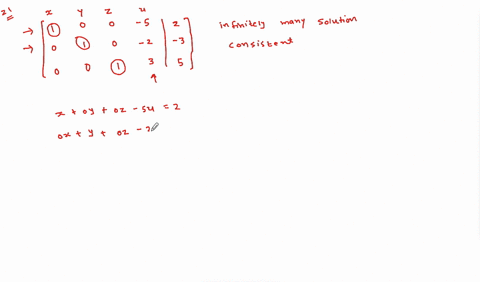 21
x y z u
→ 1 0 0 -5 | 2 infinitely many solution
→ 0 1 0 -2 | -3 consistent
0 0 1 3 | 5
x + 0y + 0z - 5u = 2
0x + y + 0z - 2